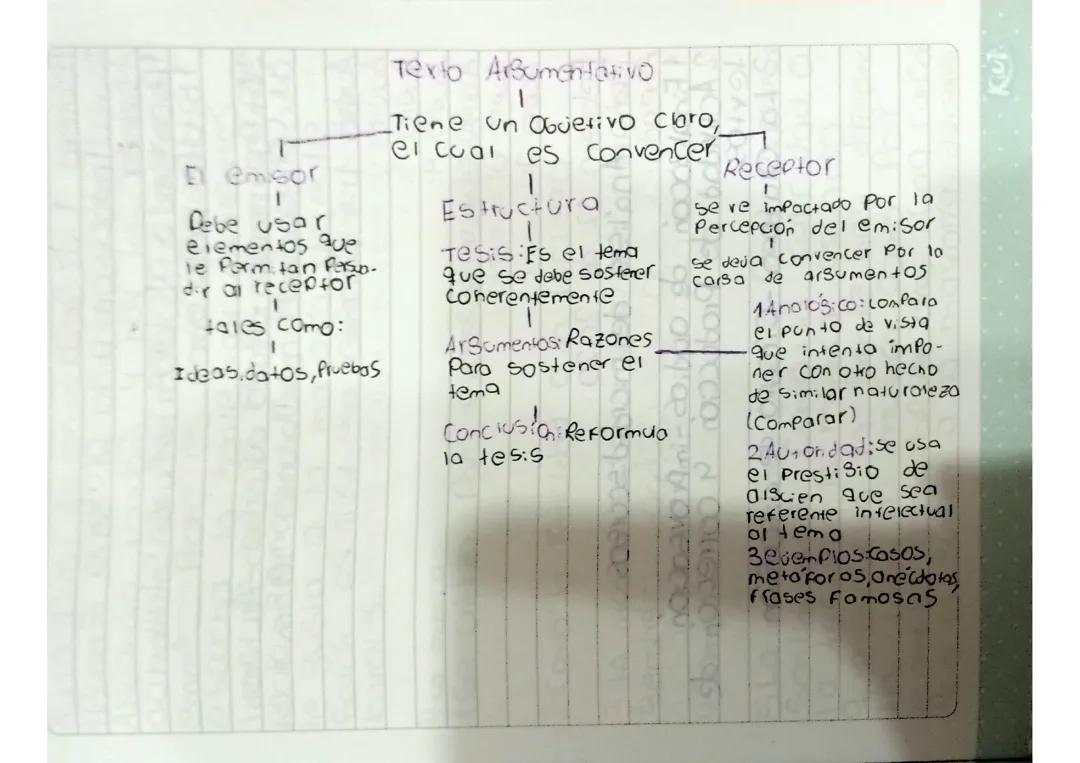 Texto Argumentativo
Tiene un Objetivo claro,
el cual es convencer
El emisor
Debe usar
elementos que
le Permitan Persu-
dir al receptor
tales como:
Ideas, datos, Pruebas
Estructura
Tesis: Es el tema
que se debe sostener
coherentemente
Argumentos: Razones
Para sostener el
tema
Conclusión: Reformula
la tesis
Receptor
se ve impactado Por la
Percepción del emisor
se deja convencer Por la
carga de argumentos
1 Analógico: compara
el punto de vista
que intenta impo-
ner con otro hecho
de similar naturaleza
(Comparar)
2 Autoridad: se usa
el Prestigio de
alguien que sea
referente intelectual
al tema
3 ejemplos: casos,
metáforas, anécdotas,
frases famosas
KUT